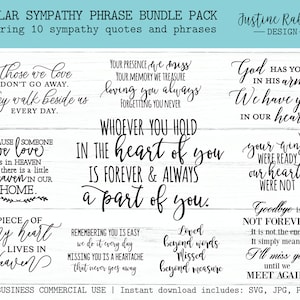 LAR SYMPATHY PHRASE BUNDLE PACK
ring 10 sympathy quotes and phrases
Justine Ra
DESIGN
those we love
DON'T GO AWAY.
y walk beside us
EVERY DAY.
YOUR PRESENCE we miss
YOUR MEMORY WE TREASURE
loving you always
FORGETTING YOU NEVER
GOD HAS YO
IN HIS arm
We have y
IN OUR hear
WHOEVER YOU HOLD
IN THE heart of you
IS FOREVER & ALWAYS
a part of you.
AUSE SOMEONE
we love
IS IN HEAVEN
there is a little
heaven IN OUR
HOME.
your wing
WERE READY
our heart
WERE NOT
PIECE OF
my heart
LIVES IN
heaven
REMEMBERING YOU IS EASY
we do it every day
MISSING YOU IS A HEARTACHE
that never goes away
Loved
beyond words
Missed
beyond measure
Goodbye
NOT FOREVER
It is not the en
It simply mean
I'll miss you
until we
MEET AGAI
BUSINESS COMMERCIAL USE | Instant download includes: SVG, JPG, P